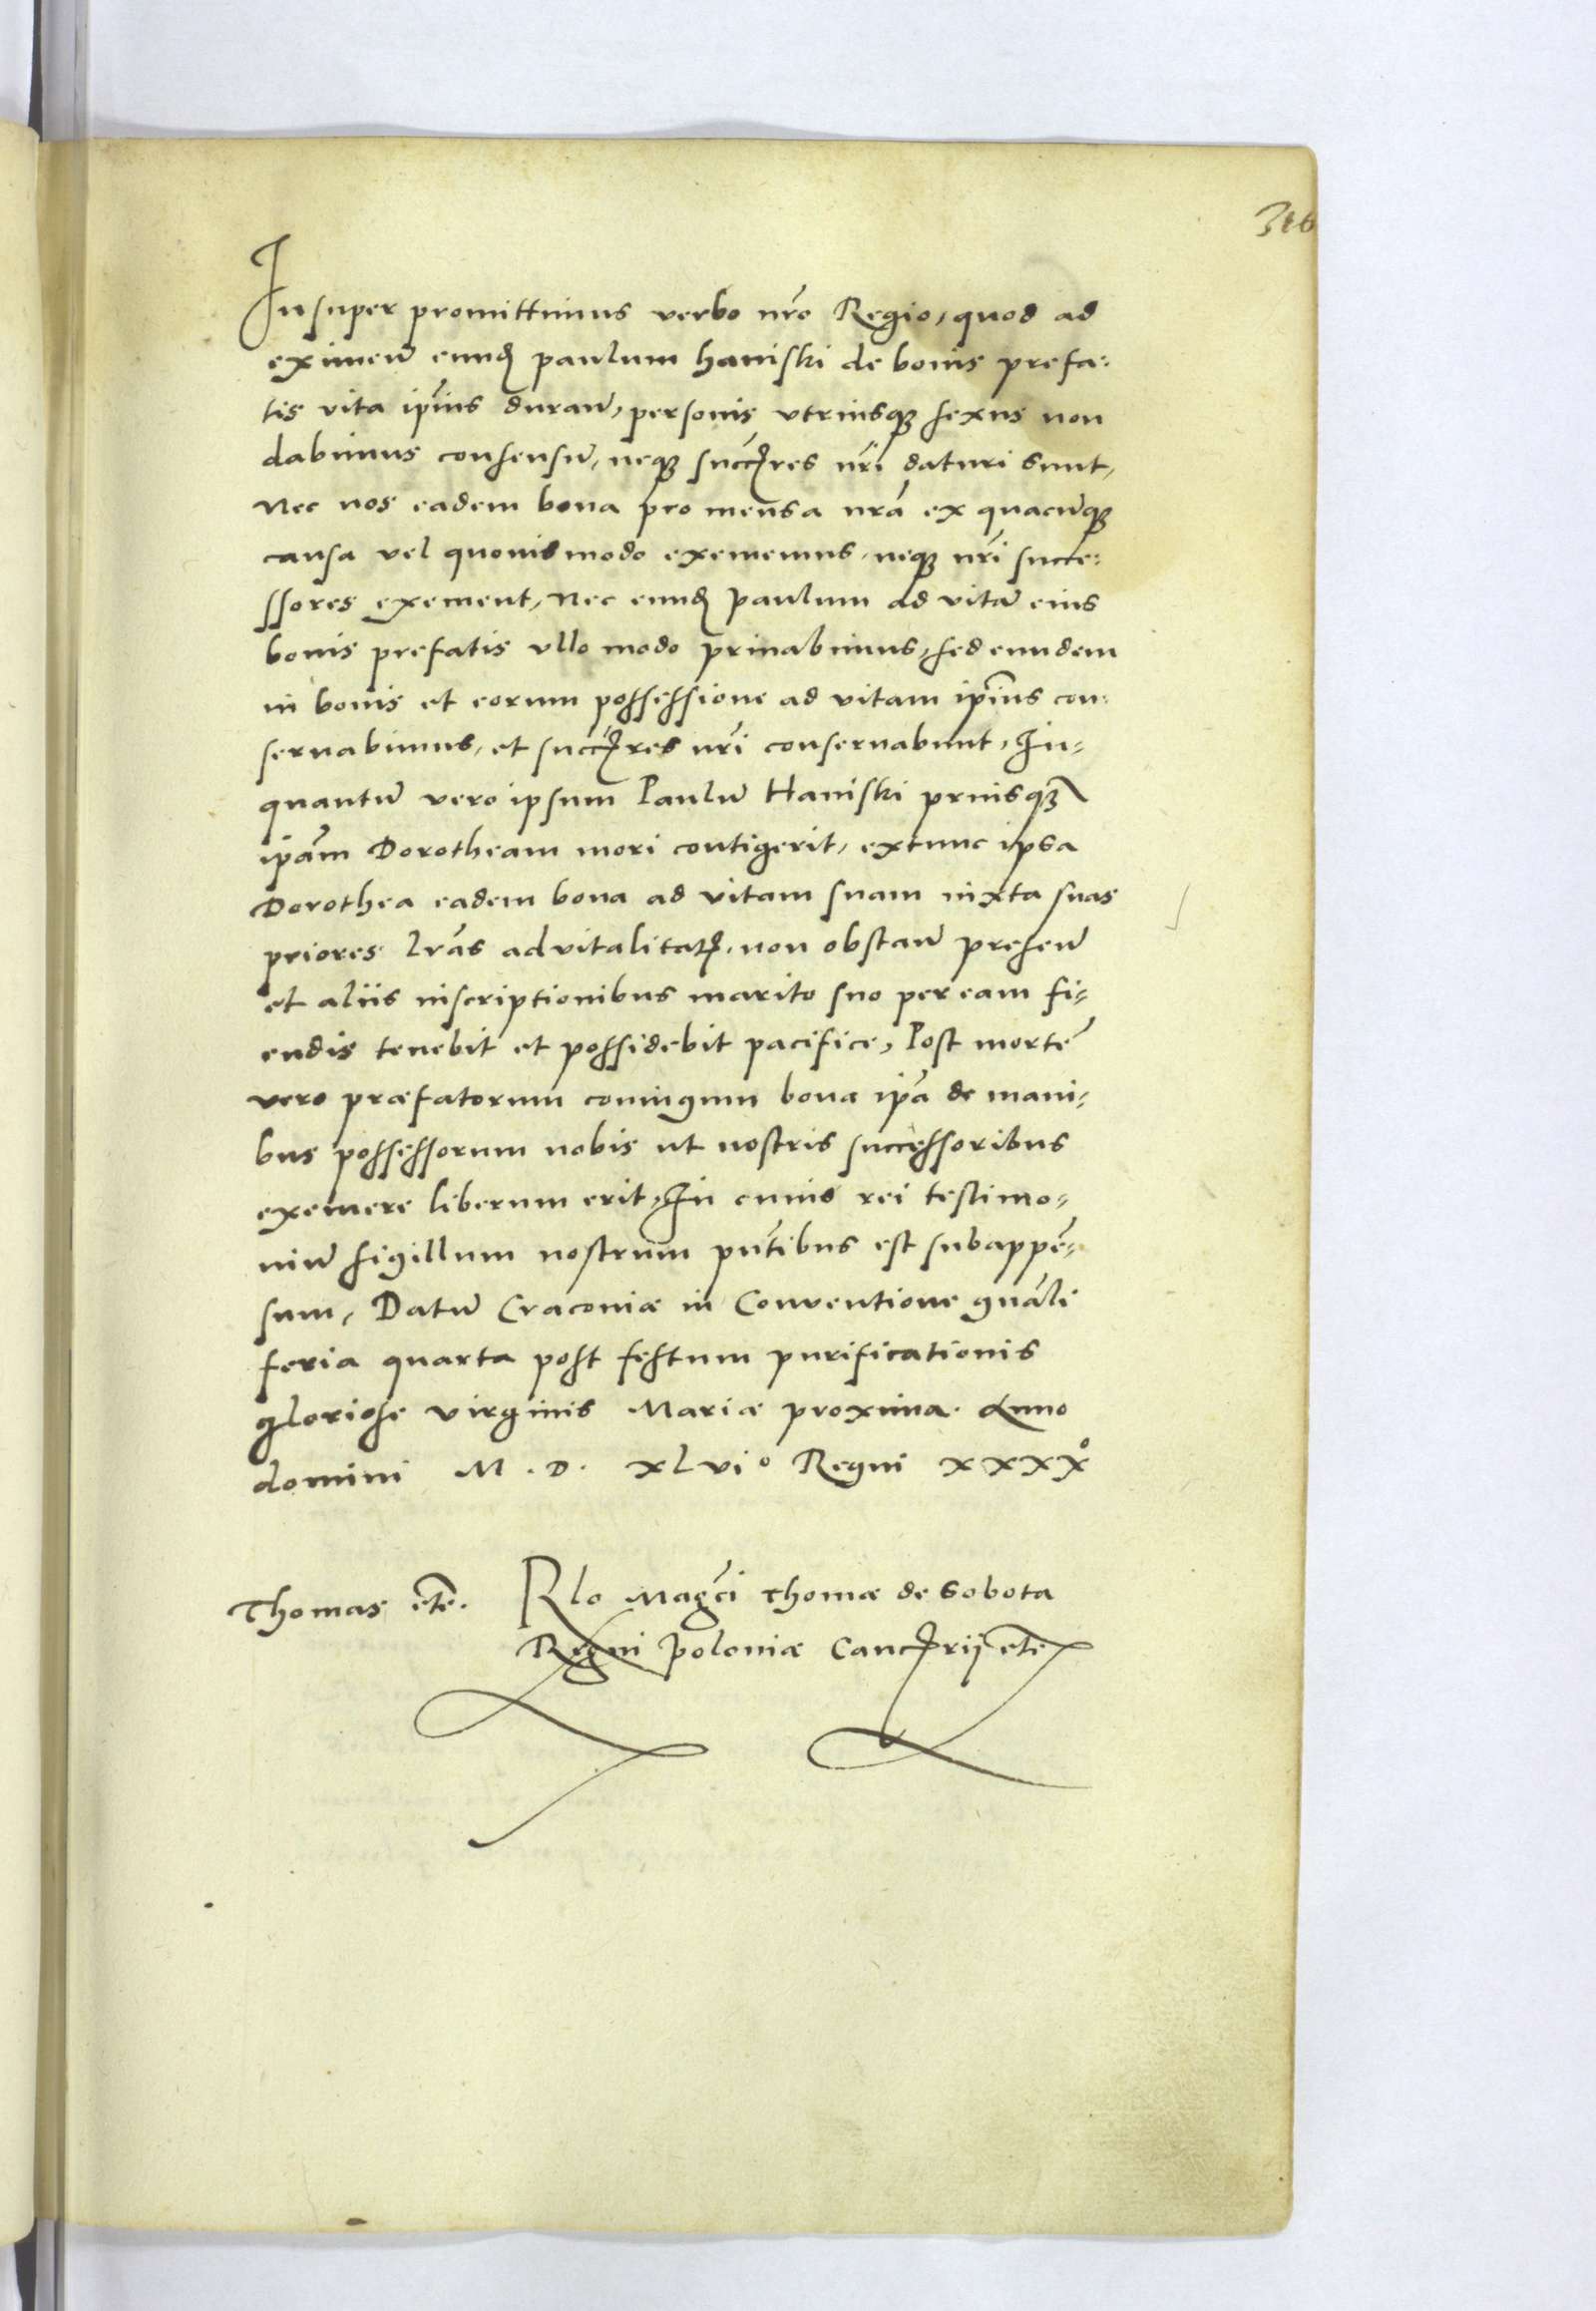 316
Insuper promittimus verbo nr̃o Regio, quod ad
eximen̄ eund̨ paulum haniski de bonis prefa:
tis vita ip̃ius duran̄, personis vtriusqȝ sexus non
dabimus consensū, neqȝ succ̨res nr̃i daturi sunt,
Nec nos eadem bona pro mensa nrã ex quacūqȝ
causa vel quouismodo exememus, neqȝ nr̃i succe:
ssores exement, Nec eund̨ paulum ad vitā eius
bonis prefatis vllo modo priuabimus, sed eundem
in bonis et eorum possessione ad vitam ip̃ius con:
seruabimus, et succ̨res nr̃i conseruabunt, In-
quantū vero ipsum Paulū Haniski priusqȝ
ipãm Dorotheam mori contigerit, extunc ipsa
Dorothea eadem bona ad vitam suam iuxta suas
priores lrãs aduitalitat̨, non obstan̄ presen̄
et aliis inscriptionibus marito suo per eam fi-
endis tenebit et possidebit pacifice, Post mortē
vero præfatorum coniugum bona ipã de mani-
bus possessorum nobis ut nostris successoribus
exemere liberum erit, In cuius rei testimo-
niū sigillum nostrum pñtibus est subappē-
sum, Datū Cracoviæ in Conventione gnãli
feria quarta post festum purificationis
gloriose virginis Mariæ proxima. Anno
domini M . D . XLvi° Regni XXXX°
Thomas etc̃. Rlo Magc̃i Thomæ de Sobota
Regni Poloniæ Canc̨rij etc̃